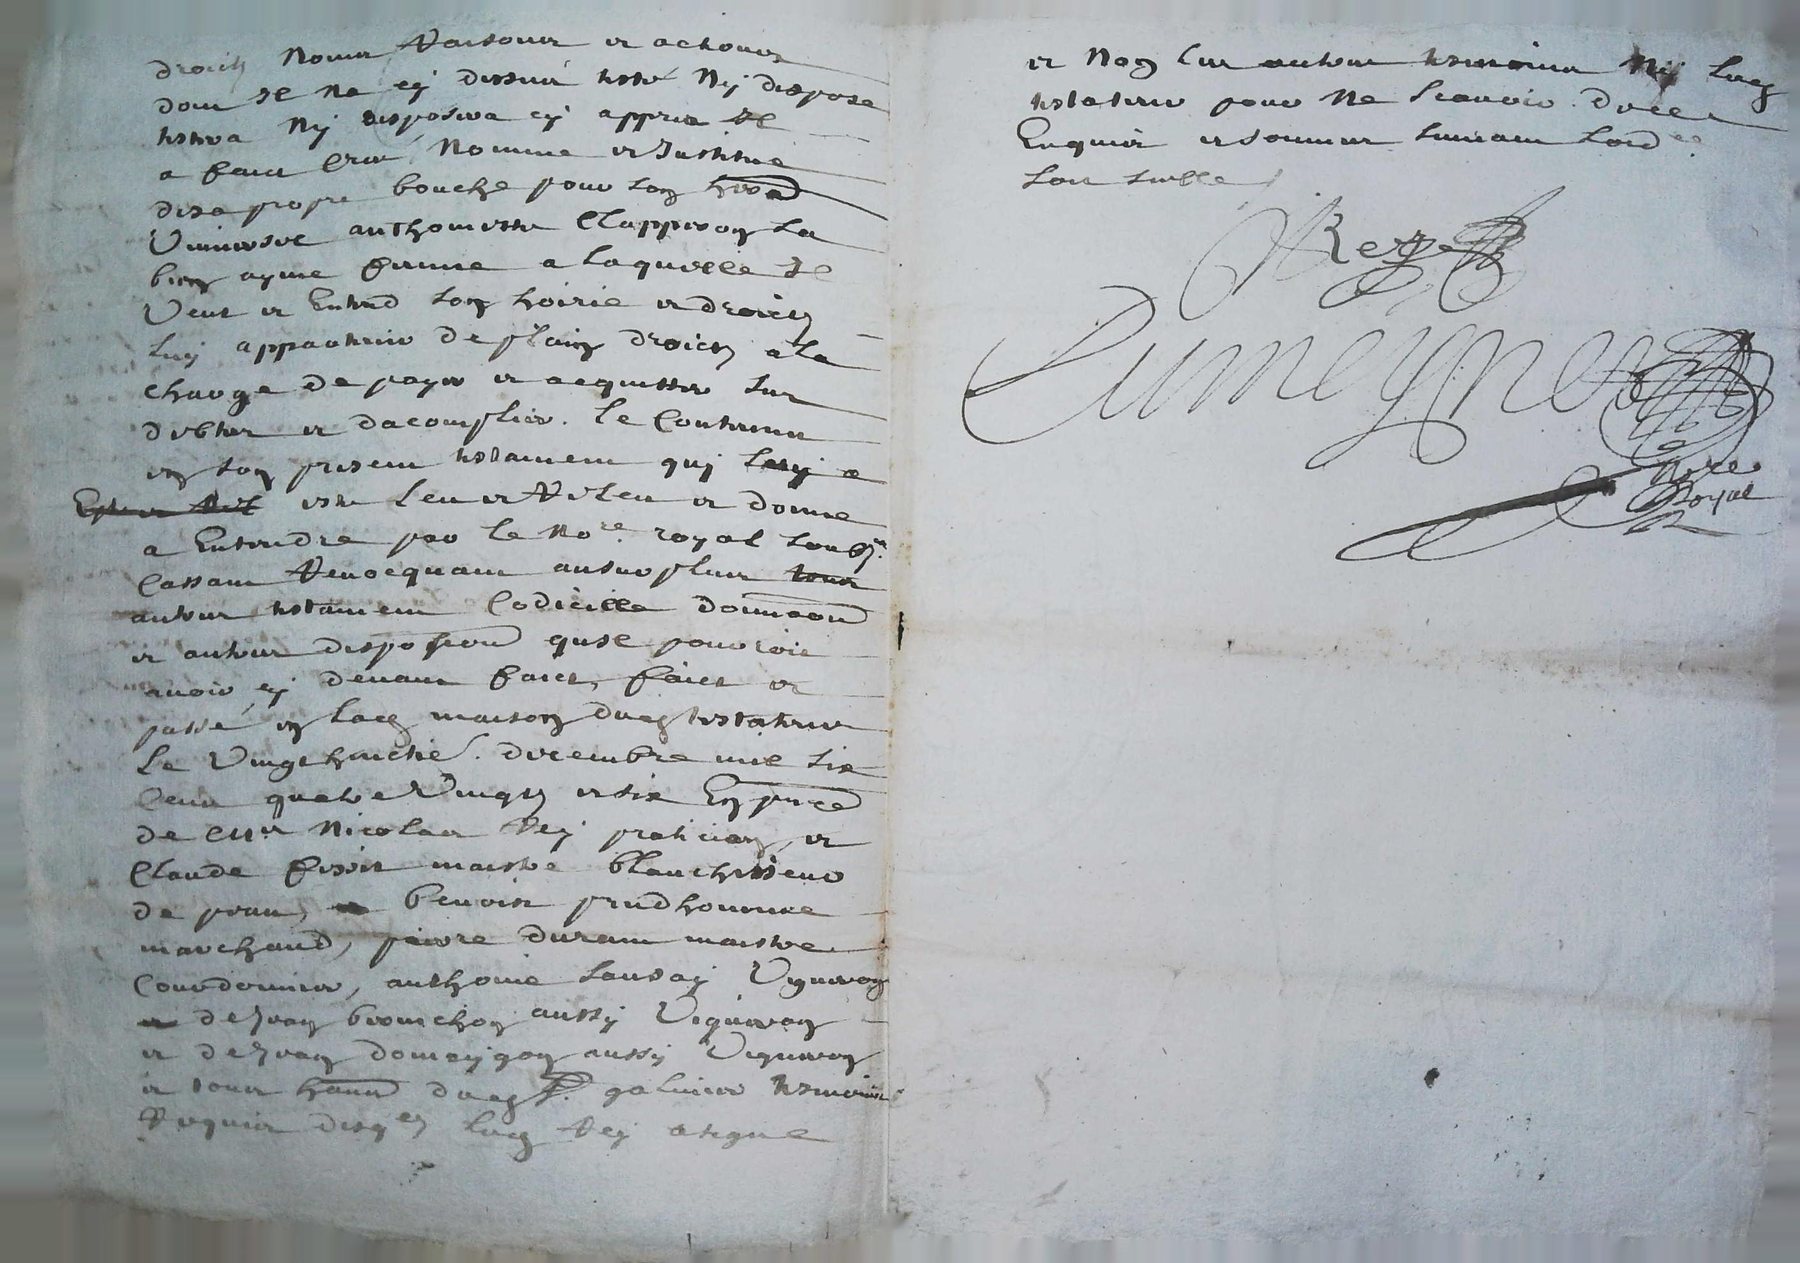 droictz noms raisons et actions
dont Il na cy dessus testé Ny dispose
testera Ny disposera cy appres Il
a faict cree Nomme et Institue
de sa propre bouche pour son
Universel anthoinette Clapperon sa
bien ayme femme a laquelle Il
Veut et Entend son hoirie et droictz
luy appartenir de plain droict a la
charge de payer et acquitter ses
debtes et dacomplir le Contenu
en son present testament quj luy a
este leu et releu et donne
a Entendre par le no.re royal soubz.ne
Cassant Revocquant au surplus tous
autres testament Codicille donnaon
et autres disposition quil pourroit
avoir cy devant faict, faict et
passé en la maison dud testateur
le Vingt huictie decembre mil six
Cens quatre Vingtz et six En pnce
de Mre Nicolas Rey praticien et
Claude maistre blanchisseur
de peau, benoist prudhomme
marchand, pierre durant maistre
Courdonnier, anthoine Lausay Vigneron
et de Jean bronchon aussy Vigneron
et de Jean domeygon aussy Vigneron
et tous hants dud galmier tesmoins
Requis desqls led Rey a signe
et Non les autres tesmoins Ny led
testateur pour Ne scavoir de ce
Enquis et sommes suivant lord.ce
Rey
Lumeyne
No.re
Royal